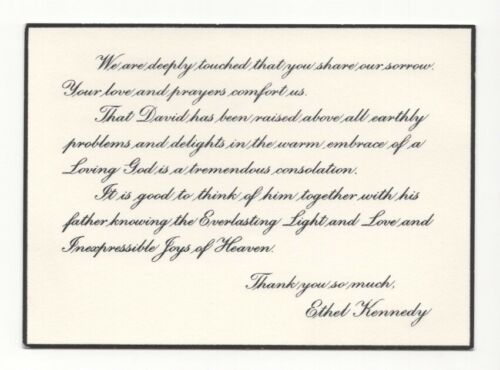 We are deeply touched that you share our sorrow.
Your love and prayers comfort us.
That David has been raised above all earthly
problems and delights in the warm embrace of a
Loving God is a tremendous consolation.
It is good to think of him together with his
father knowing the Everlasting Light and Love and
Inexpressible Joys of Heaven.
Thank you so much,
Ethel Kennedy